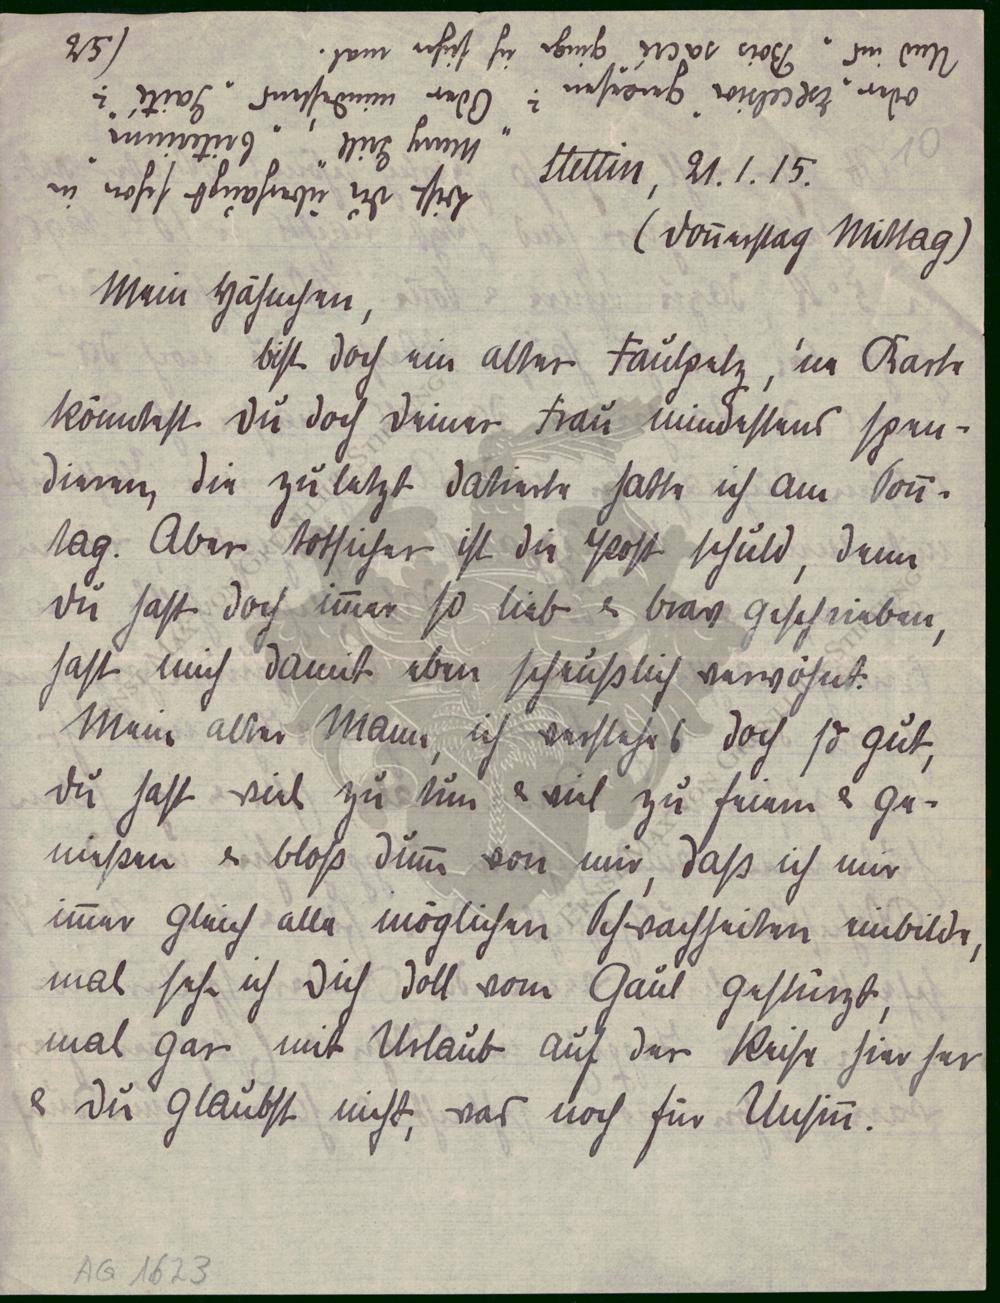 10
Stettin, 21.1.15.
(Donnerstag Mittag)
Mein Hähnchen,
bist doch ein alter Faulpelz, 'ne Karte
könntest Du doch Deiner Frau mindestens spen-
dieren, die zuletzt datierte hatte ich am Sonn-
tag. Aber totsicher ist die Post schuld, denn
Du hast doch im̄er so lieb & brav geschrieben,
hast mich damit eben scheußlich verwöhnt.
Mein alter Mann, ich verstehe's doch so gut,
Du hast viel zu tun & viel zu feiern & ge-
nießen & bloß dum̄ von mir, daß ich mir
im̄er gleich alle möglichen Schwachheiten einbilde,
mal seh ich Dich doll vom Gaul gestürzt,
mal gar mit Urlaub auf der Reise hierher
& Du glaubst nicht, was noch für Unsin̄.
bist Du überhaupt schon in
"Mary Bill", "Criterium"
oder "Excelsior" gewesen? Oder mindestens "Gaité"?
Und ins "Bois sacré" ginge ich sicher mal.
AG 1623